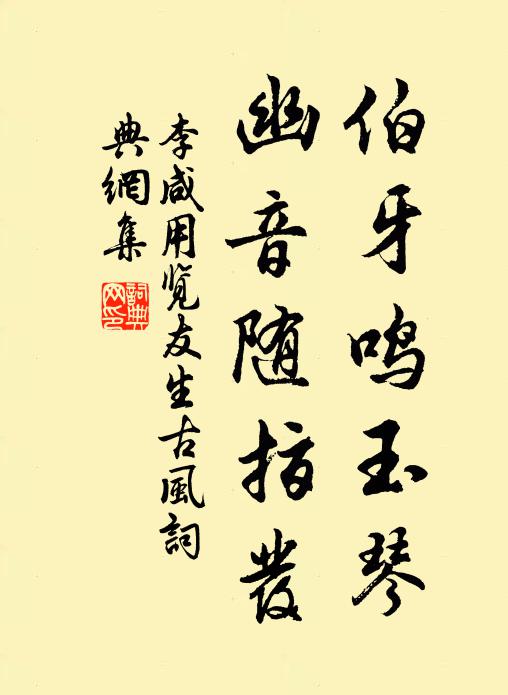 伯牙鸣玉琴
幽音随指發
李咸用览友生古風詞
典網集
詞典
网印